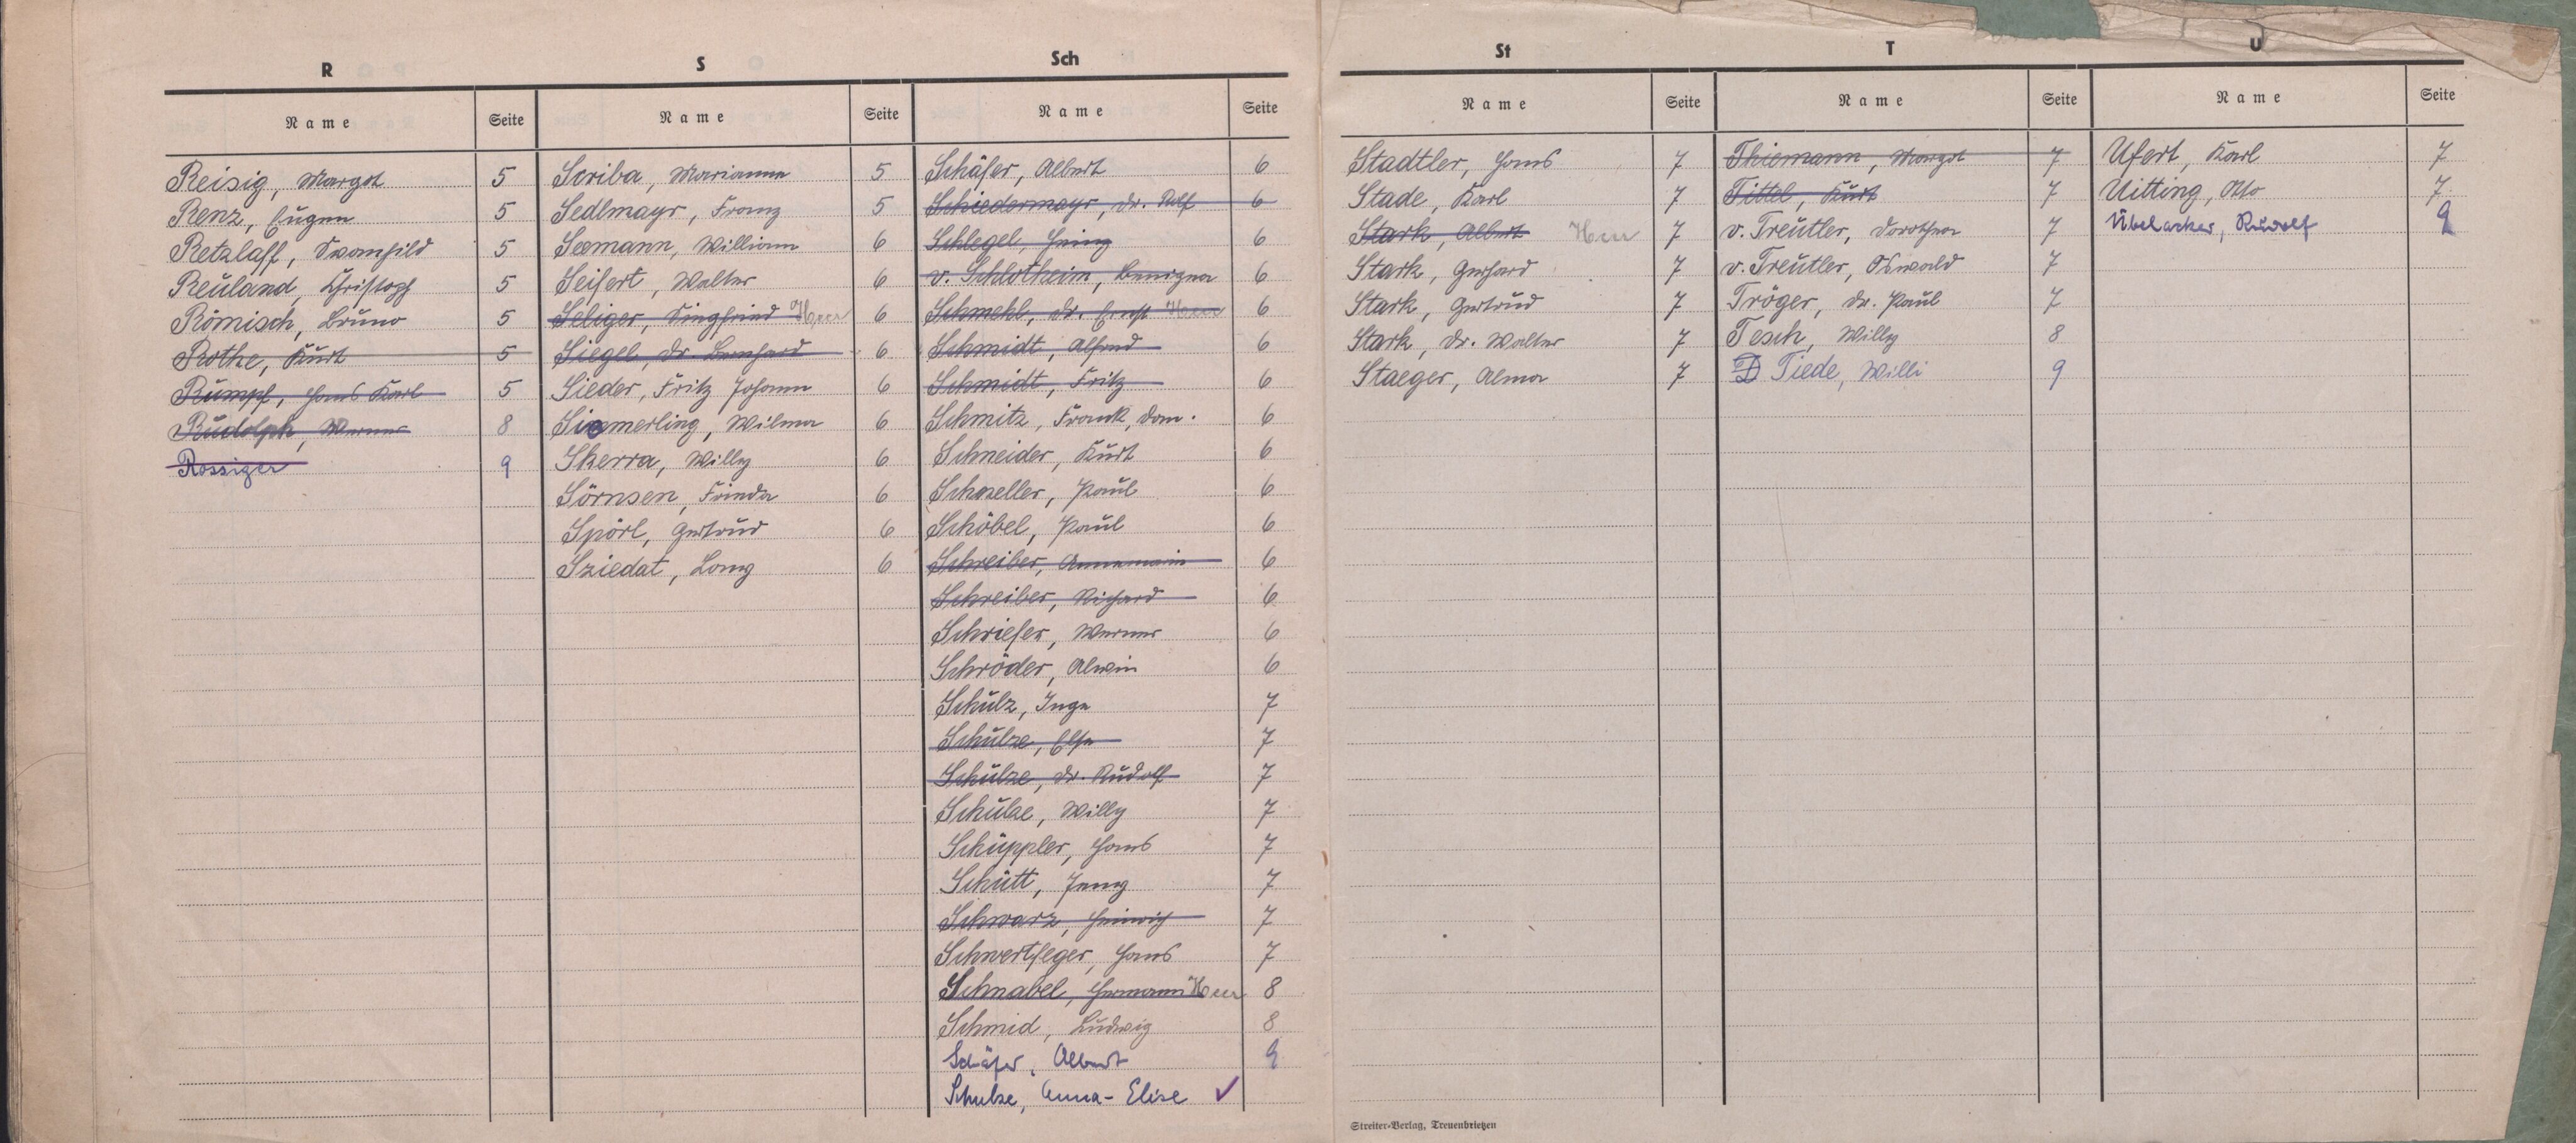 R
Name Seite
Reisig, Margot 5
Renz, Eugen 5
Retzlaff, Swanhild 5
Reuland, Christoph 5
Römisch, Bruno 5
Rothe, Kurt 5
Rumpf, Hans Karl 5
Rudolph, Werner 8
Rossiger 9
S
Name Seite
Scriba, Marianne 5
Sedlmayr, Franz 5
Seemann, William 6
Seifert, Walter 6
Seliger, Siegfried Heer 6
Siegel, Dr. Bernhard 6
Sieder, Fritz Johann 6
Siemerling, Wilma 6
Skerra, Willy 6
Sörnsen, Frieda 6
Spörl, Gertrud 6
Sziedat, Lony 6
Sch
Name Seite
Schäfer, Albert 6
Schiedermayr, Dr. Rolf 6
Schlegel, Heinz 6
v. Schlotheim, Benigna 6
Schmehl, Dr. Ernst Heer 6
Schmidt, Alfred 6
Schmidt, Fritz 6
Schmitz, Frank, Dom. 6
Schneider, Kurt 6
Schoeller, Paul 6
Schöbel, Paul 6
Schreiber, Annemarie 6
Schreiber, Richard 6
Schriefer, Werner 6
Schröder, Alwin 6
Schulz, Inge 7
Schulze, Else 7
Schulze, Dr. Rudolf 7
Schulze, Willy 7
Schüppler, Hans 7
Schütt, Jenny 7
Schwarz, Heinrich 7
Schwertfeger, Hans 7
Schnabel, Hermann Heer 8
Schmid, Ludwig 8
Schäfer, Albert 9
Schulze, Anna-Elise ✓
St
Name Seite
Stadtler, Hans 7
Stade, Karl 7
Stark, Albert Heer 7
Stark, Gerhard 7
Stark, Gertrud 7
Stark, Dr. Walter 7
Staeger, Alma 7
T
Name Seite
Thiemann, Margot 7
Tittel, Kurt 7
v. Treutler, Dorothea 7
v. Treutler, Oswald 7
Tröger, Dr. Paul 7
Tesch, Willy 8
Tiede, Willi 9
U
Name Seite
Ufert, Karl 7
Uitting, Otto 7
Übelacker, Rudolf 9
Streiter-Verlag, Treuenbrietzen